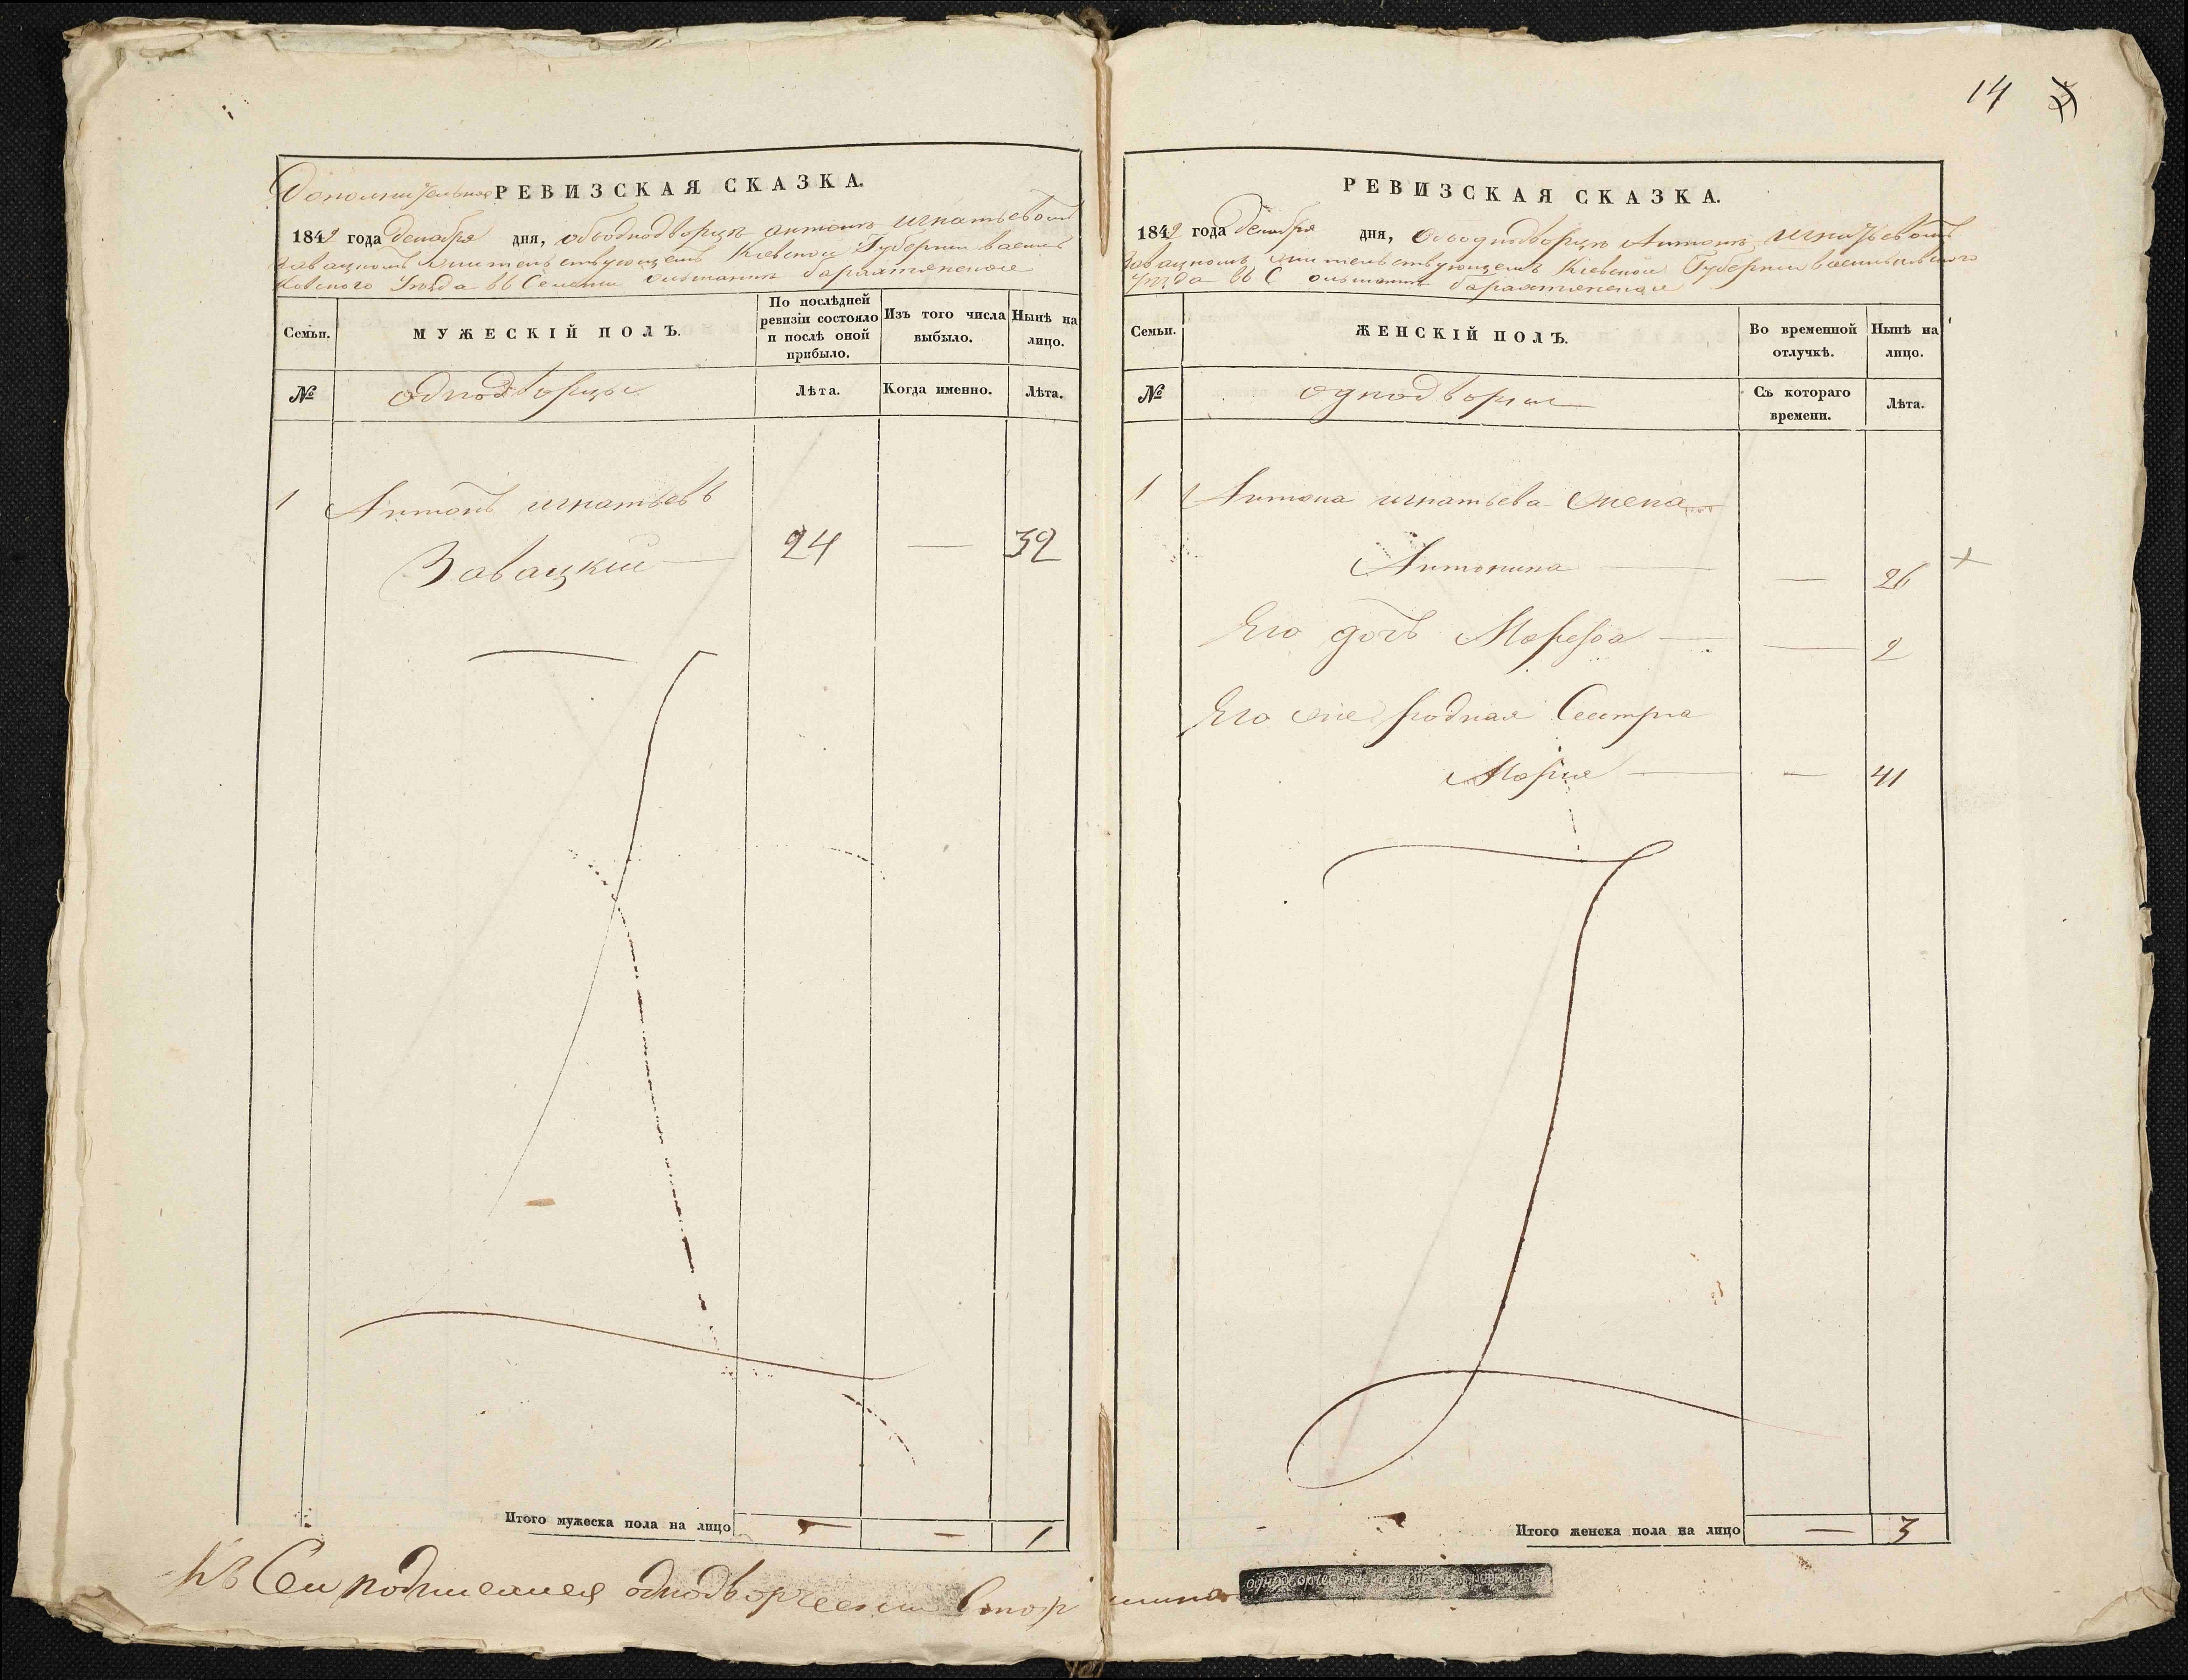 Дополнительная РЕВИЗСКАЯ СКАЗКА.
1842 года декабря дня, объ однодворцѣ антонѣ игнатьевом
Завацкомъ жительствующемъ Кіевской Губерніи василь
ковского Уѣзда въ Селеніи
Семьи.
МУЖЕСКІЙ ПОЛЪ.
По послѣдней ревизіи состояло и послѣ оной прибыло.
Изъ того числа выбыло.
Нынѣ на лицо.
№
однодворцы
Лѣта.
Когда именно.
Лѣта.
1 Антонъ игнатьевъ
Завацкій — 24 — 32
Итого мужеска пола на лицо — — 1
Къ Сей однодворческий
14
РЕВИЗСКАЯ СКАЗКА.
1842 года декабря дня, Объ однодворцѣ Антонѣ Игнатьевомъ
Завацкомъ жительствующемъ Кіевской Губерніи васильковского
Уѣзда въ С
Семьи.
ЖЕНСКІЙ ПОЛЪ.
Во временной отлучкѣ.
Нынѣ на лицо.
№
однодворцы
Съ котораго времени.
Лѣта.
1 Антона игнатьева жена
Антонина — — 26
Его дочь Марфа — — 2
Его же родная Сестра
Марія — — 41
Итого женска пола на лицо — 3